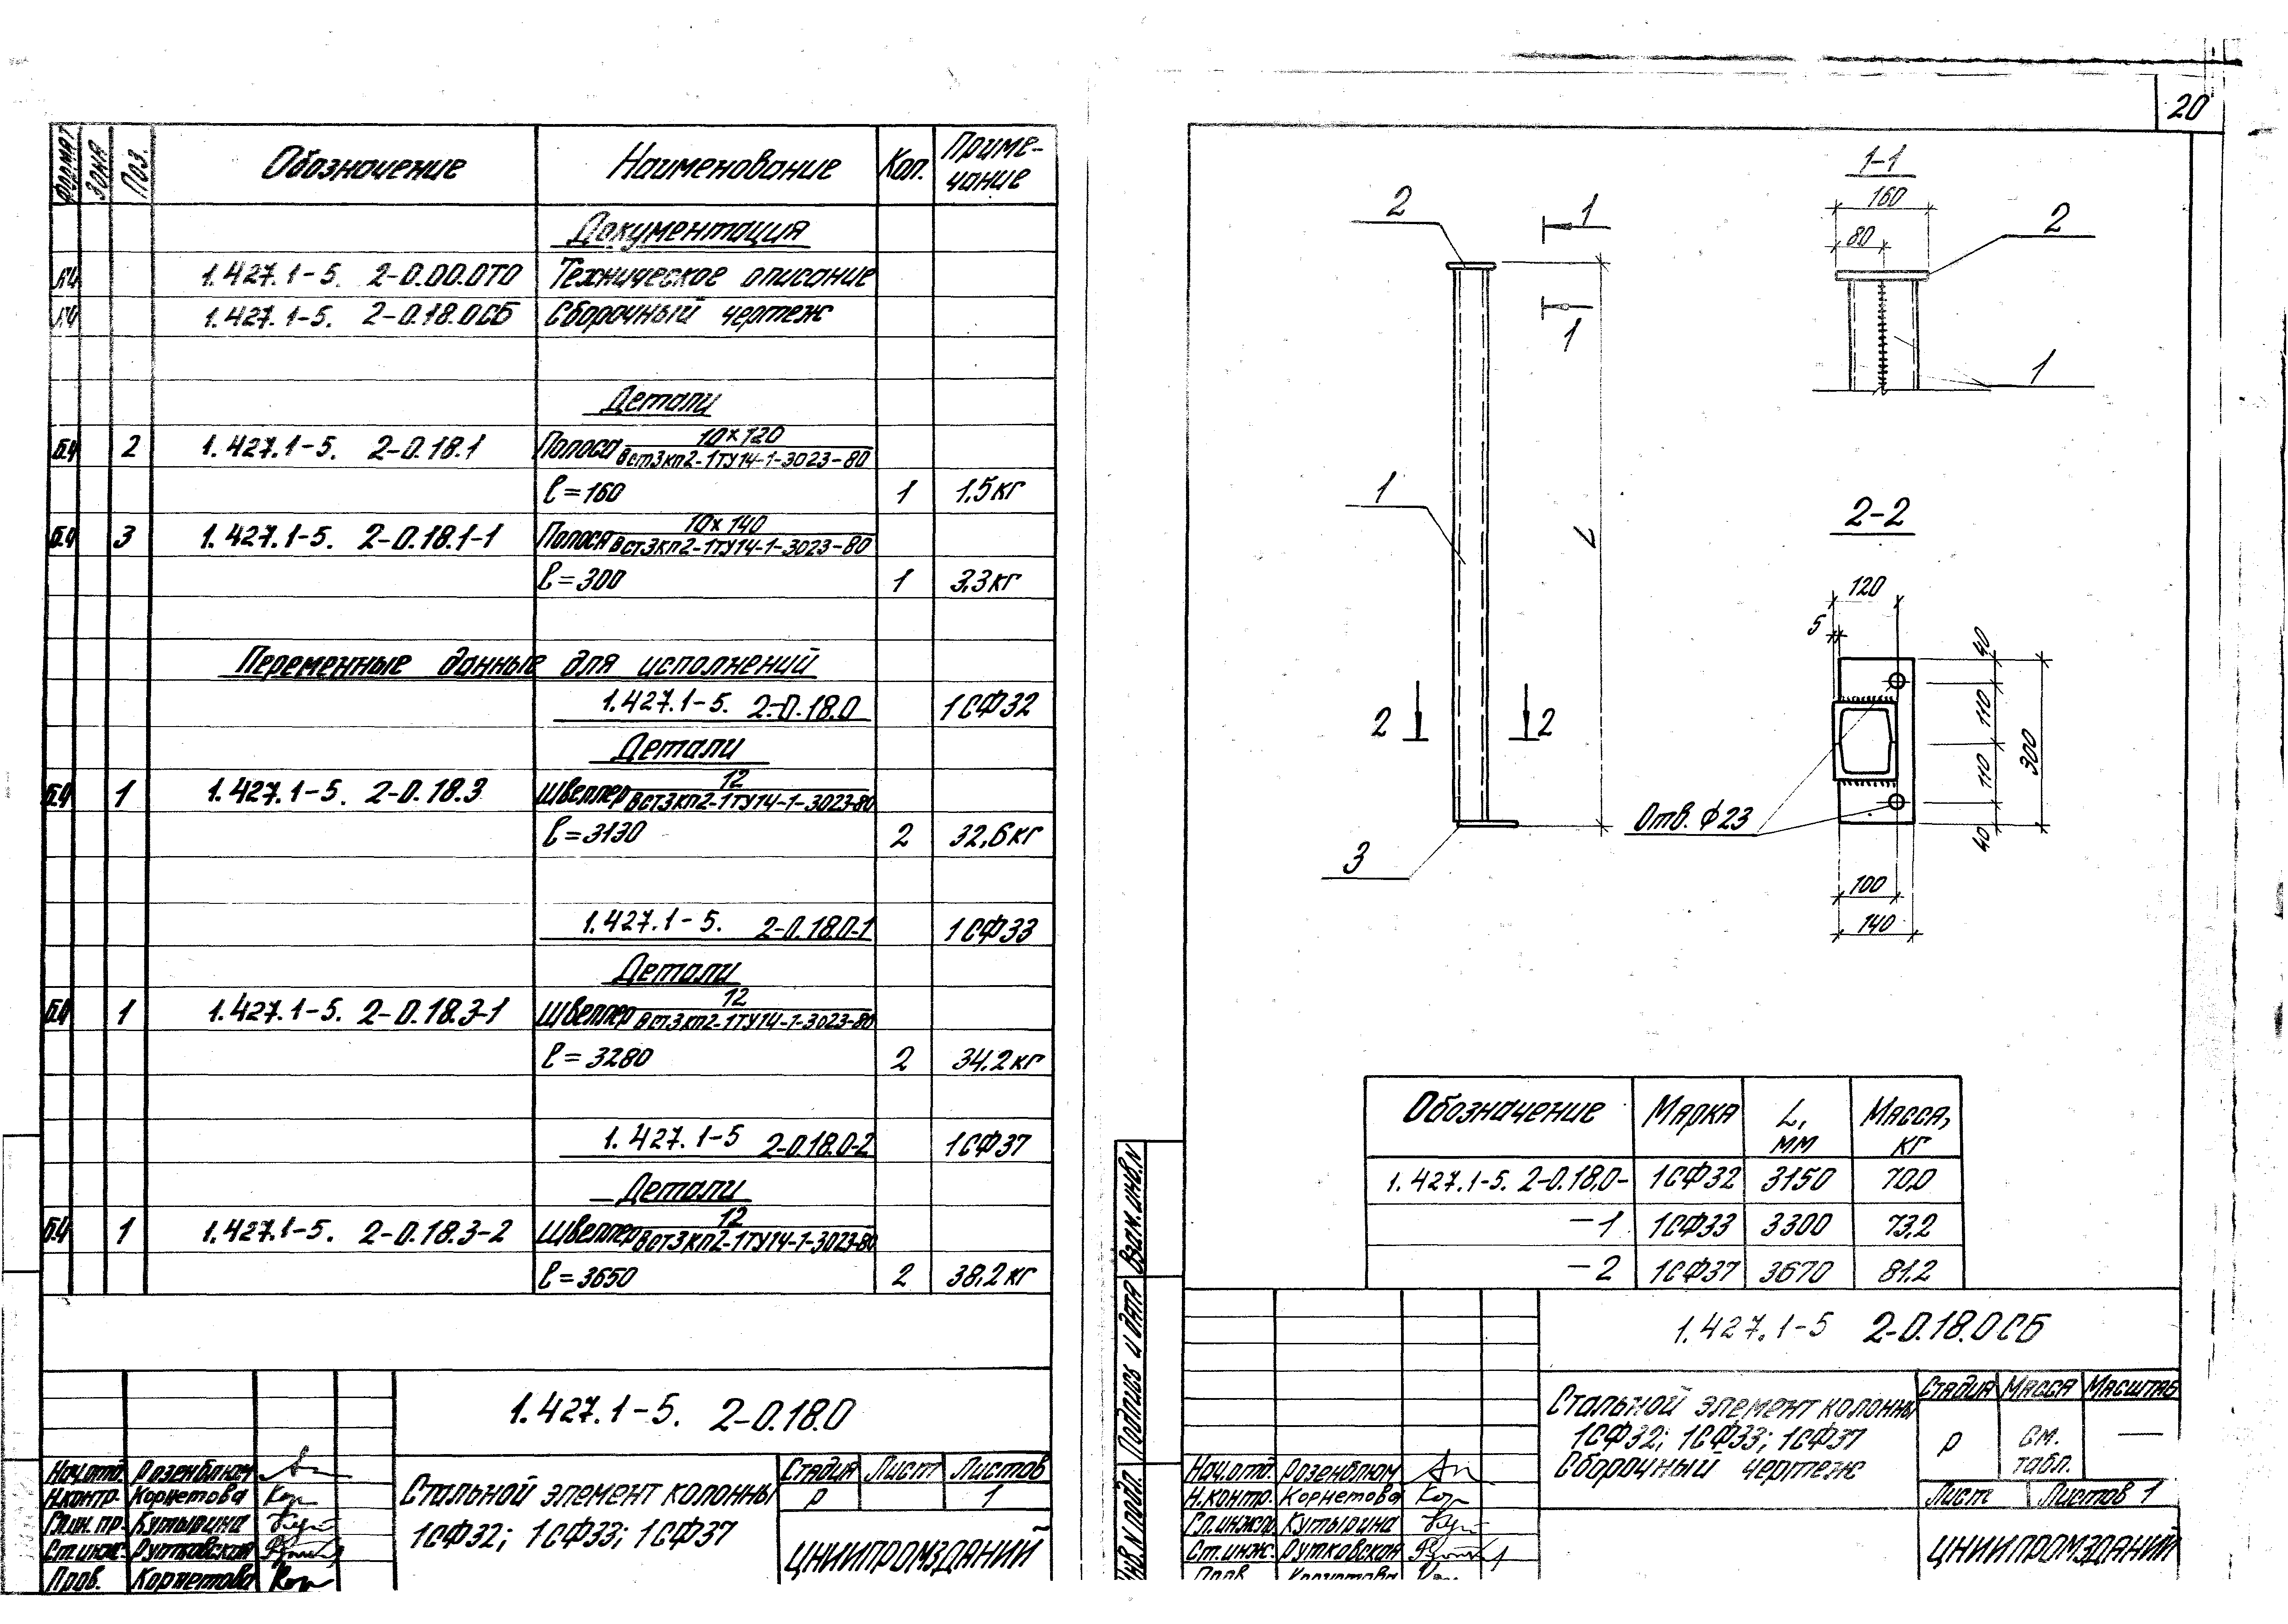 Формат Зона Поз. Обозначение Наименование Кол. Приме-
чание
Документация
1.427.1-5. 2-0.00.0ТО Техническое описание
1.427.1-5. 2-0.18.0СБ Сборочный чертеж
Детали
Б.Ч 2 1.427.1-5. 2-0.18.1 Полоса 10×120
ВСт3кп2-1ТУ14-1-3023-80
ℓ=160 1 1,5кг
Б.Ч 3 1.427.1-5. 2-0.18.1-1 Полоса 10×140
ВСт3кп2-1ТУ14-1-3023-80
ℓ=300 1 3,3кг
Переменные данные для исполнений
1.427.1-5. 2-0.18.0 1СФ32
Детали
Б.Ч 1 1.427.1-5. 2-0.18.3 Швеллер 12
ВСт3кп2-1ТУ14-1-3023-80
ℓ=3130 2 32,6кг
1.427.1-5. 2-0.18.0-1 1СФ33
Детали
Б.Ч 1 1.427.1-5. 2-0.18.3-1 Швеллер 12
ВСт3кп2-1ТУ14-1-3023-80
ℓ=3280 2 34,2кг
1.427.1-5 2-0.18.0-2 1СФ37
Детали
Б.Ч 1 1.427.1-5. 2-0.18.3-2 Швеллер 12
ВСт3кп2-1ТУ14-1-3023-80
ℓ=3650 2 38,2кг
1.427.1-5. 2-0.18.0
Нач.отд. Розенблюм
Н.контр. Корнетова
Гл.ин.пр. Кутырина
Ст.инж. Рутковская
Пров. Корнетова
Стальной элемент колонны
1СФ32; 1СФ33; 1СФ37
Стадия Лист Листов
Р 1
ЦНИИПРОМЗДАНИЙ
20
2
1
1
1
L
2
2
3
1-1
160
80
2
1
2-2
120
5
40
110
110
40
300
Отв. ϕ23
100
140
Обозначение Марка L,
мм Масса,
кг
1.427.1-5. 2-0.18.0- 1СФ32 3150 70,0
-1 1СФ33 3300 73,2
-2 1СФ37 3670 81,2
Взам.инв.N
Подпись и дата
Инв.N подл.
1.427.1-5 2-0.18.0СБ
Нач.отд. Розенблюм
Н.контр. Корнетова
Гл.инж.пр Кутырина
Ст.инж. Рутковская
Пров. Корнетова
Стальной элемент колонны
1СФ32; 1СФ33; 1СФ37
Сборочный чертеж
Стадия Масса Масштаб
Р см.
табл. —
Лист Листов 1
ЦНИИПРОМЗДАНИЙ